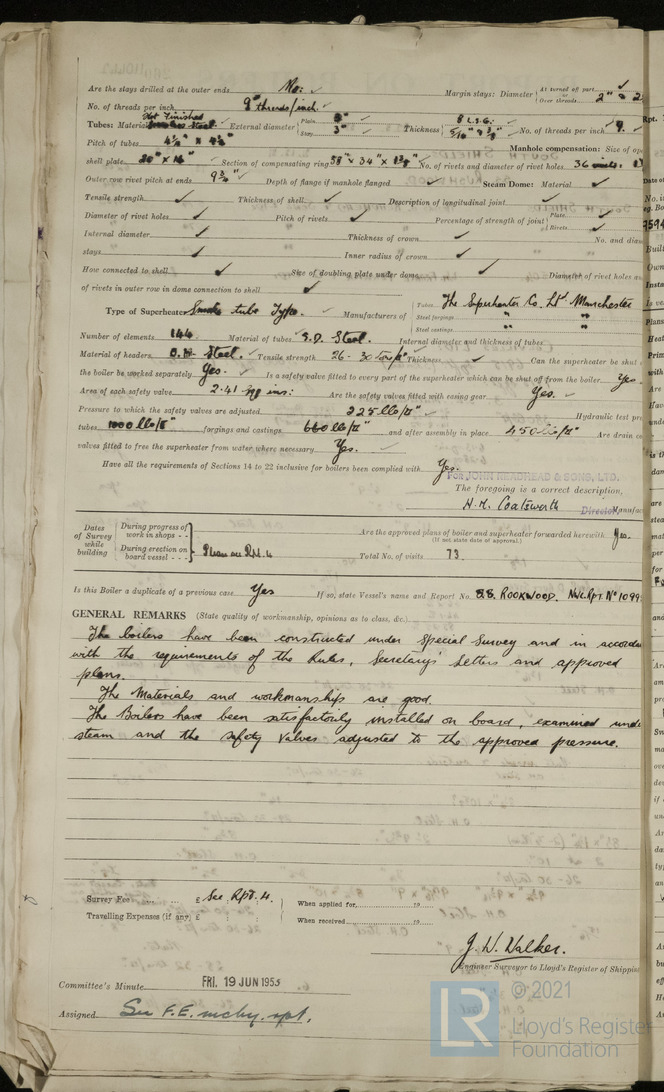 Are the stays drilled at the outer ends No: ✓ Margin stays: Diameter { At turned off part ✓ or Over threads 2"
No. of threads per inch 9 threads/inch. ✓
Tubes: Material Hot Finished Seamless Steel External diameter { Plain 3" Stay 3" Thickness { 8 L.S.G. ✓ 5/16" No. of threads per inch 9. ✓
Pitch of tubes Manhole compensation: Size of ope
shell plate Section of compensating ring No. of rivets and diameter of rivet holes 36
Outer row rivet pitch at ends Depth of flange if manhole flanged ✓ Steam Dome: Material ✓
Tensile strength ✓ Thickness of shell ✓ Description of longitudinal joint ✓
Diameter of rivet holes ✓ Pitch of rivets ✓ Percentage of strength of joint { Plate ✓ Rivets ✓
Internal diameter ✓ Thickness of crown ✓ No. and diam
stays ✓ Inner radius of crown ✓
How connected to shell ✓ Size of doubling plate under dome ✓ Diameter of rivet holes an
of rivets in outer row in dome connection to shell ✓
Type of Superheater Smoke tube Type. Manufacturers of { Tubes The Superheater Co. Ltd Manchester
Steel forgings " "
Steel castings " "
Number of elements 144 Material of tubes S.D. Steel. Internal diameter and thickness of tubes
Material of headers O.H. Steel. Tensile strength 26-30 tons/□" Thickness ✓ Can the superheater be shut
the boiler be worked separately Yes. ✓ Is a safety valve fitted to every part of the superheater which can be shut off from the boiler Yes
Area of each safety valve 2.41 sq ins: Are the safety valves fitted with easing gear Yes. ✓
Pressure to which the safety valves are adjusted 225 lb/□" ✓ Hydraulic test pre
tubes 1000 lb/□" forgings and castings 660 lb/□" and after assembly in place 450 lb/□" Are drain co
valves fitted to free the superheater from water where necessary Yes. ✓
Have all the requirements of Sections 14 to 22 inclusive for boilers been complied with Yes.
FOR JOHN READHEAD & SONS, LTD.
The foregoing is a correct description,
H. M. Coatsworth Director Manufac
Dates of Survey while building { During progress of work in shops - - During erection on board vessel - - - } Please see Rpt. 4
Are the approved plans of boiler and superheater forwarded herewith Yes.
(If not state date of approval.)
Total No. of visits 73.
Is this Boiler a duplicate of a previous case Yes If so, state Vessel's name and Report No. S.S. ROOKWOOD. Nwc. Rpt No 1099
GENERAL REMARKS (State quality of workmanship, opinions as to class, &c.)
The boilers have been constructed under Special Survey and in accorda
with the requirements of the Rules, Secretary's Letters and approved
plans.
The Materials and workmanship are good.
The Boilers have been satisfactorily installed on board, examined unde
steam and the safety valves adjusted to the approved pressure.
Survey Fee ... ... £ See Rpt. 4. When applied for, 19
Travelling Expenses (if any) £ When received, 19
J. W. Walker.
Engineer Surveyor to Lloyd's Register of Shippin
Committee's Minute FRI. 19 JUN 1953
Assigned See F.E. mchy. rpt.
LR © 2021
Lloyd's Register
Foundation